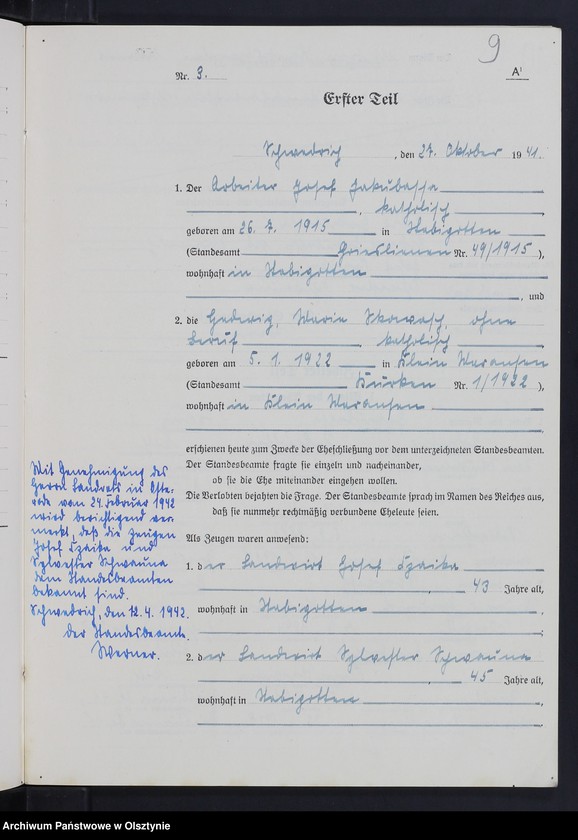 9
Nr. 3.
A¹
Erster Teil
Schwedrich, den 27. Oktober 1941.
1. Der Arbeiter Josef Jakubassa
, katholisch,
geboren am 26. 7. 1915 in Stabigotten
(Standesamt Grieslienen Nr. 49/1915),
wohnhaft in Stabigotten
, und
2. die Hedwig, Maria Skowasch, ohne
Beruf, katholisch,
geboren am 5. 1. 1922 in Klein Maransen
(Standesamt Kurken Nr. 1/1922),
wohnhaft in Klein Maransen
erschienen heute zum Zwecke der Eheschließung vor dem unterzeichneten Standesbeamten.
Der Standesbeamte fragte sie einzeln und nacheinander,
ob sie die Ehe miteinander eingehen wollen.
Die Verlobten bejahten die Frage. Der Standesbeamte sprach im Namen des Reiches aus,
daß sie nunmehr rechtmäßig verbundene Eheleute seien.
Als Zeugen waren anwesend:
1. der Landwirt Josef Czaika
, 43 Jahre alt,
wohnhaft in Stabigotten,
;
2. der Landwirt Sylvester Schwauna
, 45 Jahre alt,
wohnhaft in Stabigotten,
Mit Genehmigung des
Herrn Landrats in Oste-
rode vom 24. Februar 1942
wird berichtigend ver-
merkt, daß die Zeugen
Josef Czaika und
Sylvester Schwauna
dem Standesbeamten
bekannt sind.
Schwedrich, den 12. 4. 1942.
Der Standesbeamte.
Werner.
Archiwum Państwowe w Olsztynie